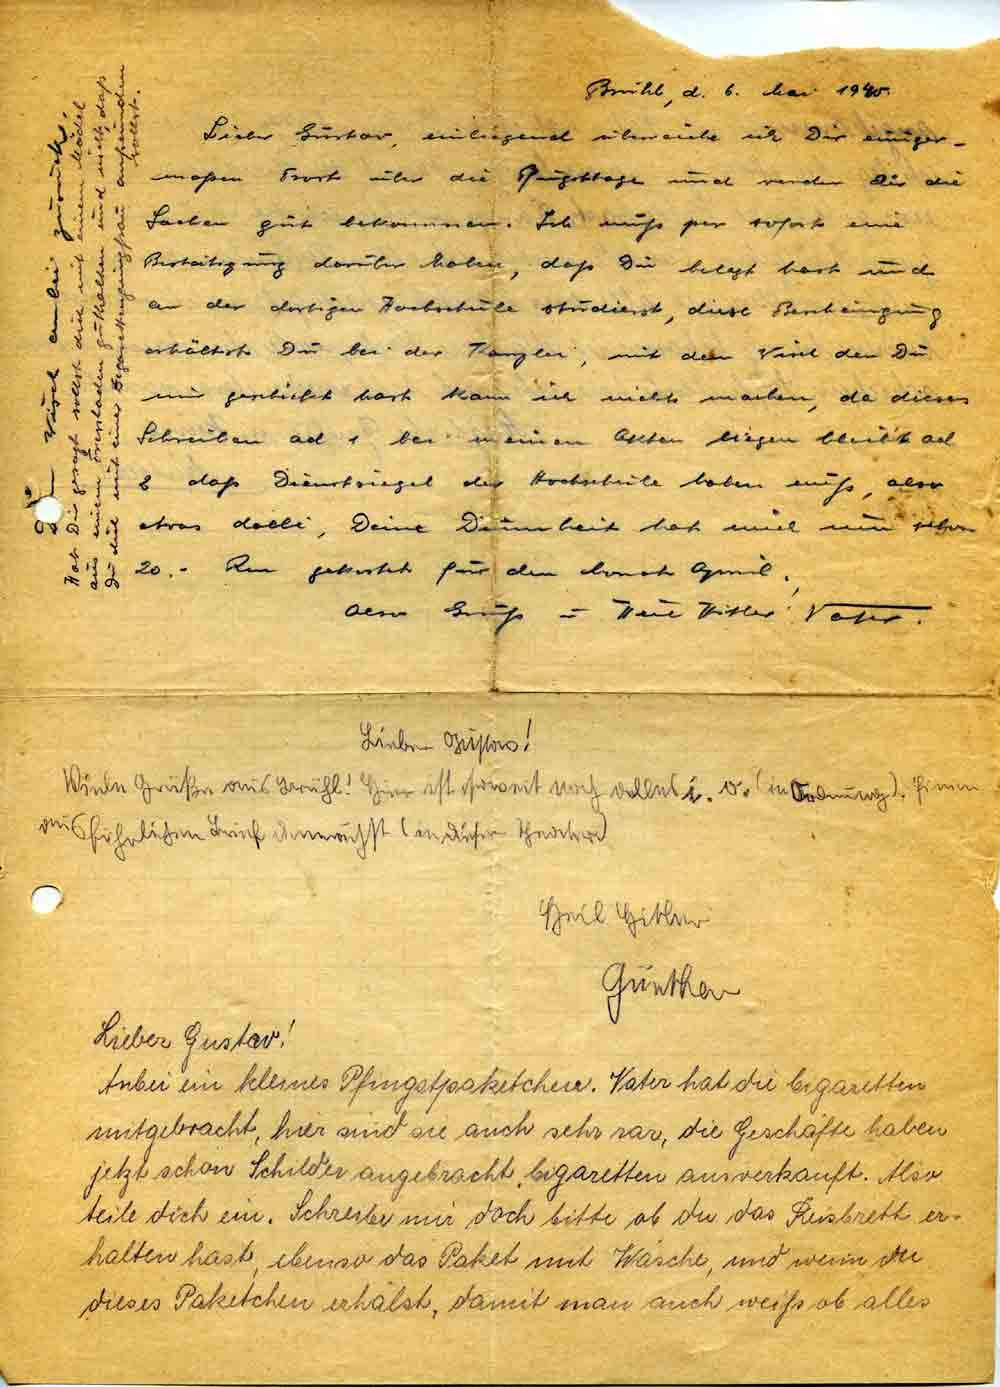 Brühl, d. 6. Mai 1940.
Lieber Gustav, einliegend überreiche ich Dir einiger-
maßen Trost über die Pfingsttage und werden Dir die
Sachen gut bekommen. Ich muß per sofort eine
Bestätigung darüber haben, daß Du belegt hast und
an der dortigen Hochschule studierst, diese Bescheinigung
erhältst Du bei der Kanzlei, mit dem Wisch den Du
mir geschickt hast kann ich nichts machen, da dieses
Schreiben ad 1 bei meinen Akten liegen bleibt ad
2 daß Dienstsiegel der Hochschule haben muß, also
etwas dalli, Deine Dummheit hat mich nun schon
20.- Rm gekostet für den Monat April.
Also Gruß u Heil Hitler! Vater.
Wisch anbei zurück.
Hab Dir gesagt sollst dich mit einem Mädel
aus einem gut halten und nicht, daß
Du dich mit einer
sollst.
Lieber Gustav!
Viele Grüße aus Brühl! Hier ist soweit noch alles i. O. (in Ordnung). Einen
ausführlichen Brief demnächst (in diesem
Heil Hitler
Günther
Lieber Gustav!
Anbei ein kleines Pfingstpaketchen. Vater hat die Cigaretten
mitgebracht, hier sind sie auch sehr rar, die Geschäfte haben
jetzt schon Schilder angebracht, Cigaretten ausverkauft. Also
teile dich ein. Schreibe mir doch bitte ob du das Reisbrett er-
halten hast, ebenso das Paket mit Wäsche, und wenn du
dieses Paketchen erhälst, damit man auch weiß ob alles